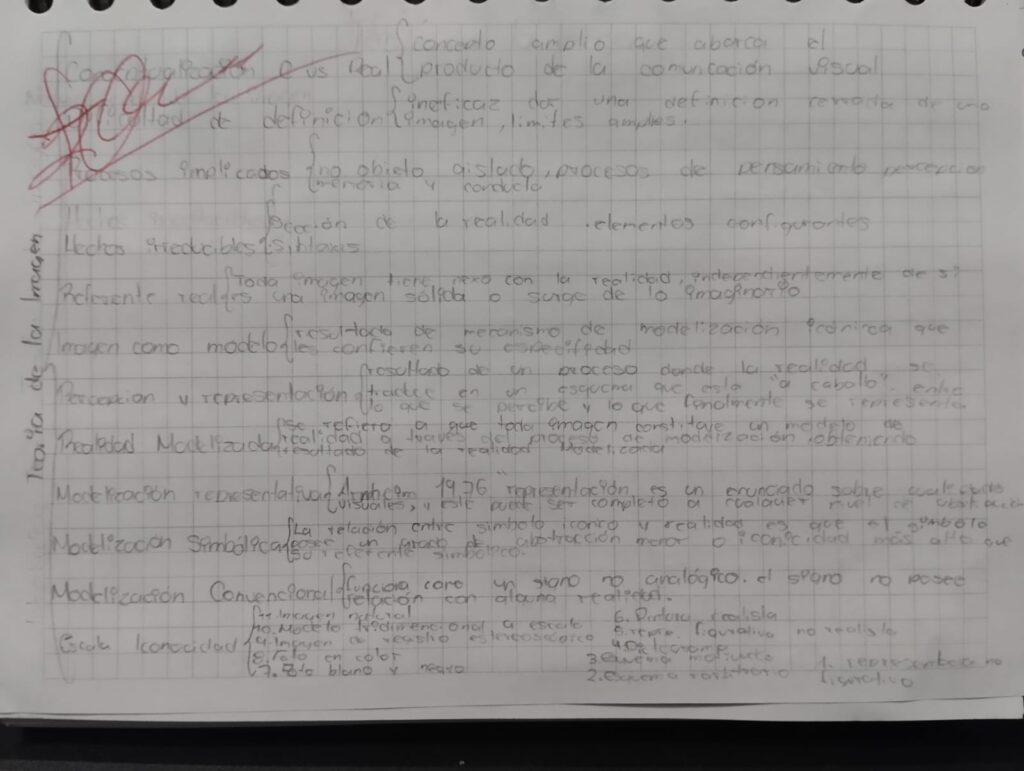 Teoría de la Imagen
concepto amplio que abarca el
producto de la comunicación visual
ineficaz dar una definicion cerrada de una
de definición imagen, limites amplios.
Procesos implicados no objeto aislado, procesos de pensamiento percepcion
memoria y conducta
Sección de la realidad. elementos configurantes
Hechos irreducibles Sintaxis
Toda imagen tiene nexo con la realidad, independientemente de si
Referente real es una imagen sólida o surge de lo imaginario
resultado de mecanismo de modelización icónica que
Imagen como modelo les confieren su
resultado de un proceso donde la realidad se
Percepcion y representación traduce en un esquema que esta "a caballo" entre
lo que se percibe y lo que finalmente se representa
se refiere a que toda imagen constituye un modelo de
Realidad Modelizada realidad a traves del proceso de modelización obteniendo
resultado de la realidad Modelizada
Modelización representativa 1976 representación es un enunciado sobre cualidades
visuales, y este puede ser completo a cualquier nivel de
La relación entre simbolo icono y realidad es que el simbolo
Modelización Simbólica posee un grado de abstracción menor o iconicidad más alto que
su referente simbolico.
Modelización Convencional funciona como un signo no analógico. el signo no posee
relación con alguna realidad.
11. Imagen natural 6. Pintura realista
10. Modelo tridimencional a escala 5. repre. figurativa no realista
Escala Iconocidad 9. Imagen de registro estereoscopico 4. Pictograma
8. Foto en color 3. Esquema motivado 1. representacion no
7. Foto blanco y negro 2. Esquema arbitrario figurativa